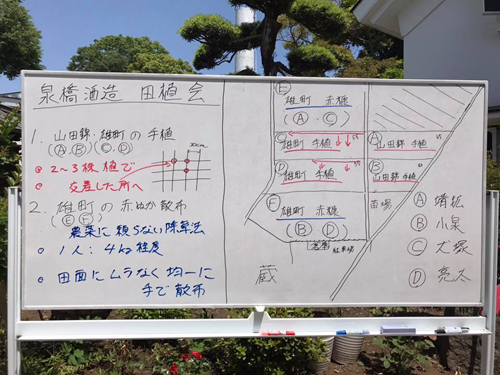 泉橋酒造 田植会
1. 山田錦・雄町の手植
(A)(B) (C,D)
30cm
2~3株植で
交差した所へ
2. 雄町の赤ぬか散布
(E F)
農薬に頼らない除草法
1人:4kg程度
田面にムラなく均一に
手で散布
E
雄町 赤糠
(A・C)
C
雄町 手植
A
山田錦 手植
D
雄町 手植
B
山田錦 手植
F
雄町 赤糠
(B D)
苗場
駐車場
蔵
A 靖拡
B 小泉
C 犬塚
D 亮太